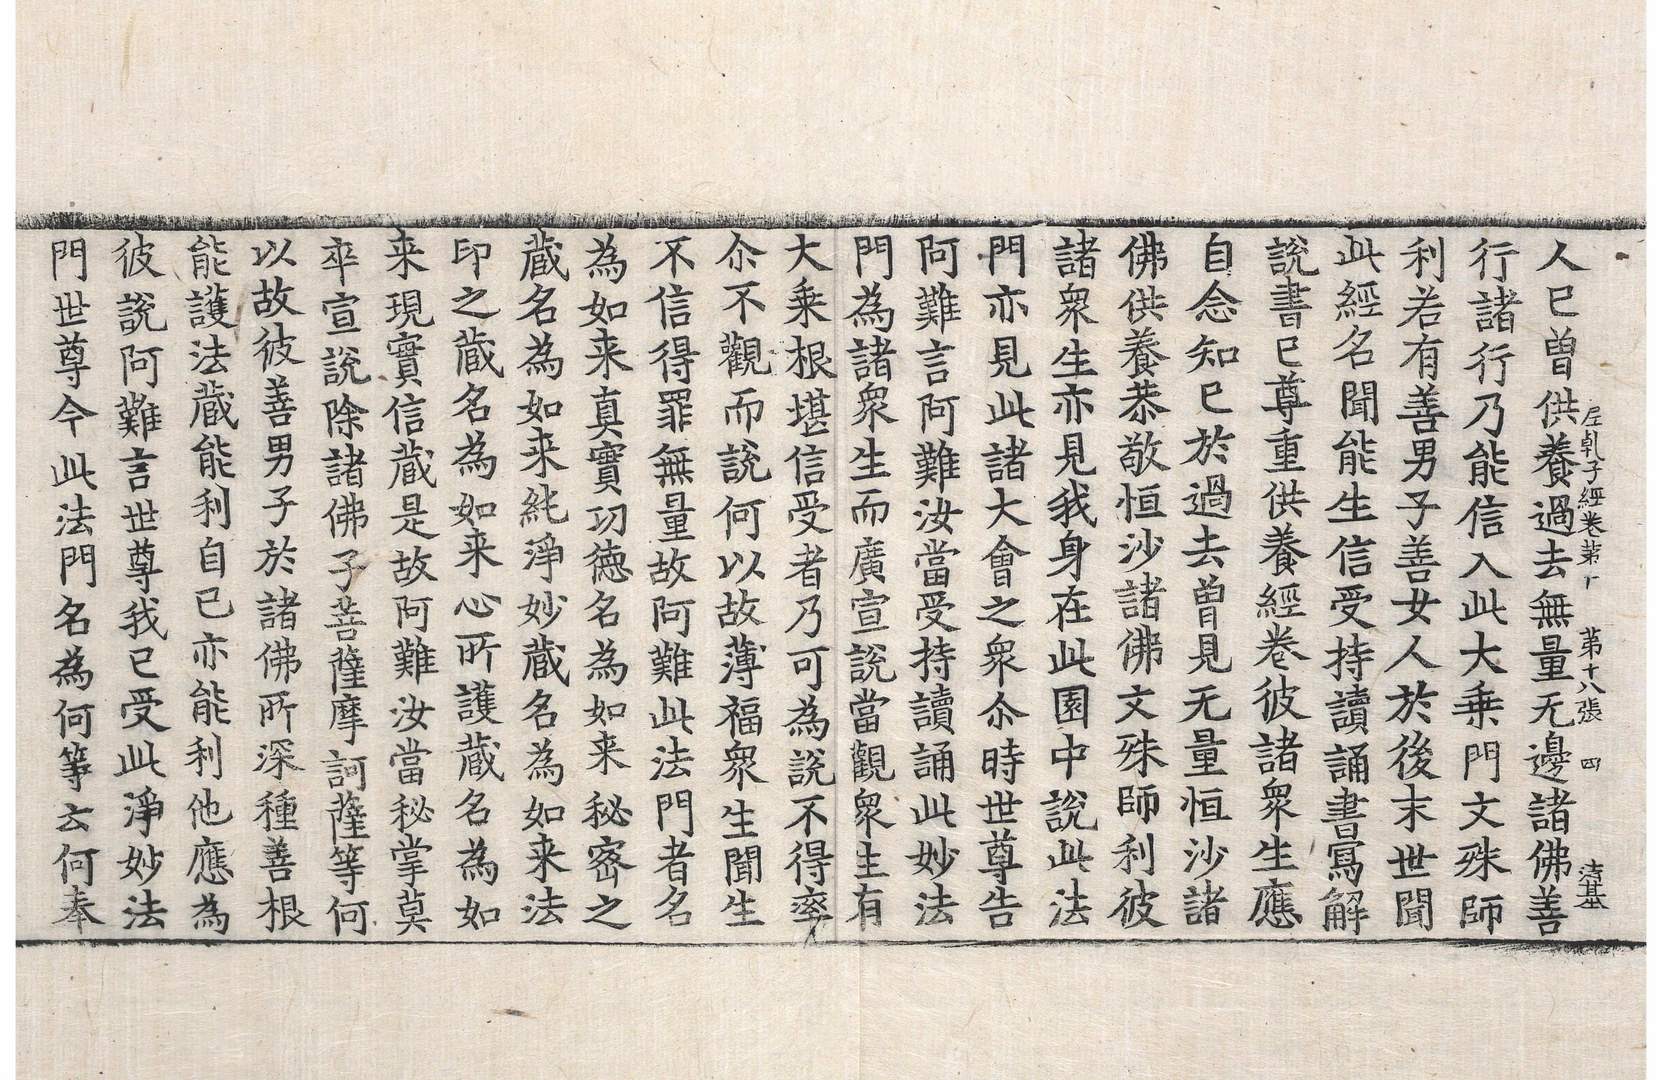 尼乹子經卷第十 第十八張 四
人已曽供養過去無量无邊諸佛善
行諸行乃能信入此大乗門文殊師
利若有善男子善女人於後末世聞
此經名聞能生信受持讀誦書寫解
說書已尊重供養經卷彼諸衆生應
自念知已於過去曽見无量恒沙諸
佛供養恭敬恒沙諸佛文殊師利彼
諸衆生亦見我身在此園中說此法
門亦見此諸大會之衆尒時世尊告
阿難言阿難汝當受持讀誦此妙法
門為諸衆生而廣宣說當觀衆生有
大乗根堪信受者乃可為說不得率
尒不觀而說何以故薄福衆生聞生
不信得罪無量故阿難此法門者名
為如来真實㓛德名為如来秘密之
藏名為如来純淨妙藏名為如来法
印之藏名為如来心所護藏名為如
来現實信藏是故阿難汝當秘掌莫
卒宣說除諸佛子菩薩摩訶薩等何
以故彼善男子於諸佛所深種善根
能護法藏能利自已亦能利他應為
彼說阿難言世尊我已受此淨妙法
門世尊今此法門名為何等云何奉